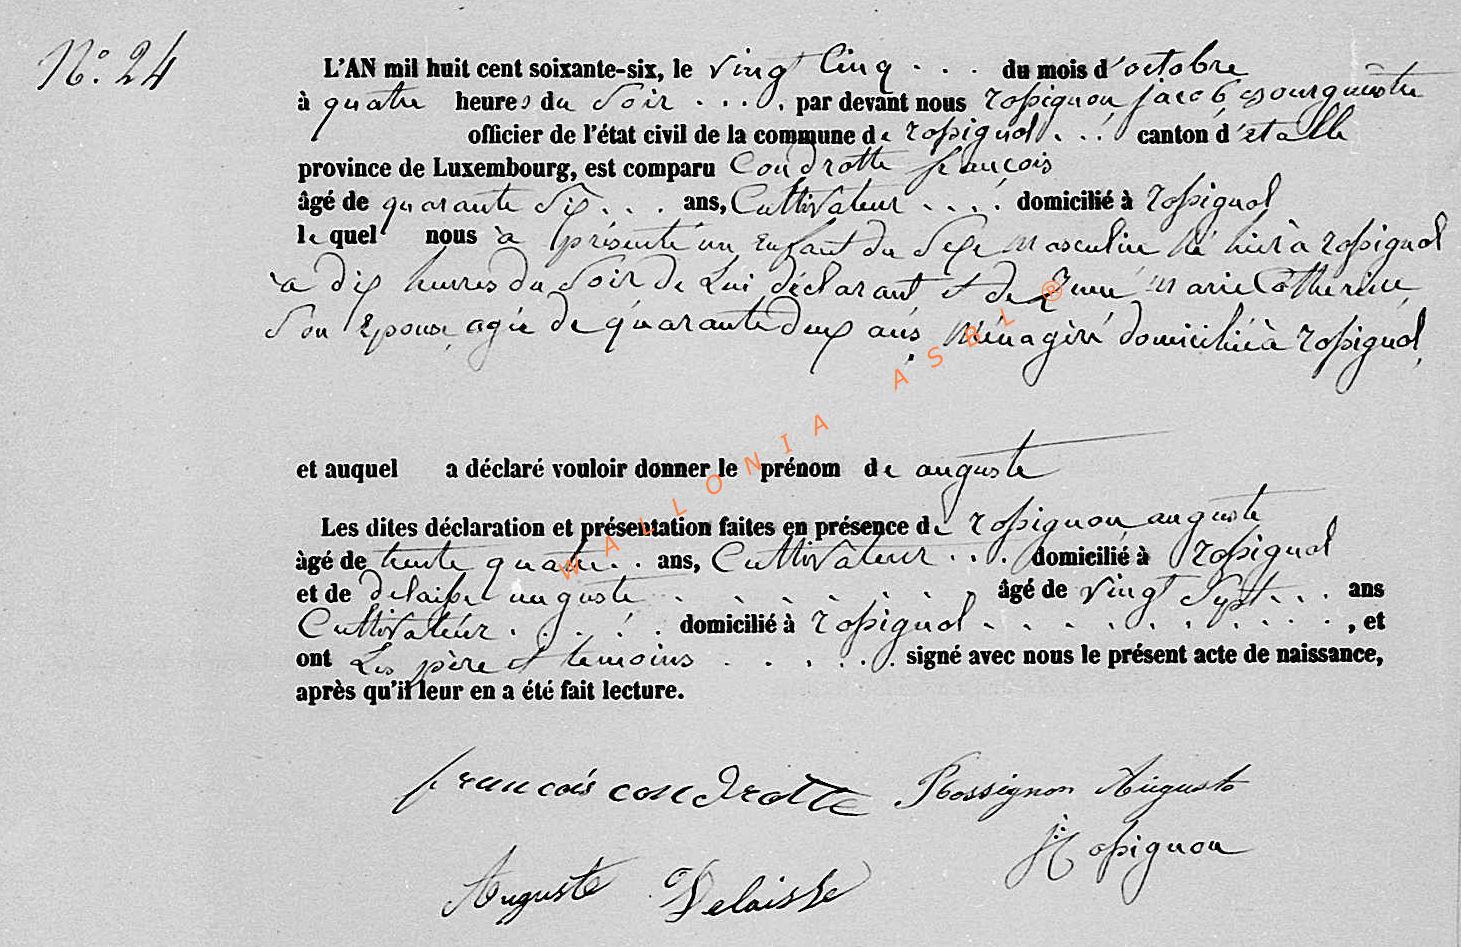 N.° 24
L'AN mil huit cent soixante-six, le vingt Cinq . . . du mois d'octobre
à quatre heures du Soir . . . . par devant nous rossignon jacob bourguemestre
officier de l'état civil de la commune de rossignol . . . canton d'etalle
province de Luxembourg, est comparu Condrotte françois
âgé de quarante Six . . . ans, Cultivateur . . . . domicilié à rossignol
le quel nous à présenté un Enfant du Sexe masculin né hier à rossignol
à dix heures du Soir de Lui déclarant et de marie Catherine
Son Epouse agée de quarante deux ans ménagère domiciliée à rossignol
et auquel a déclaré vouloir donner le prénom de auguste
Les dites déclaration et présentation faites en présence de rossignon auguste
âgé de trente quatre . . ans, Cultivateur . . . domicilié à rossignol
et de delaisse auguste . . . . . . . âgé de vingt Sept . . . ans
Cultivateur . . . . . domicilié à rossignol . . . . . . . . . . , et
ont Les père et temoins . . . . . . signé avec nous le présent acte de naissance,
après qu'il leur en a été fait lecture.
françois condrotte Rossignon Auguste
J: Rossignon
Auguste Delaisse
WALLONIA ASBL ®